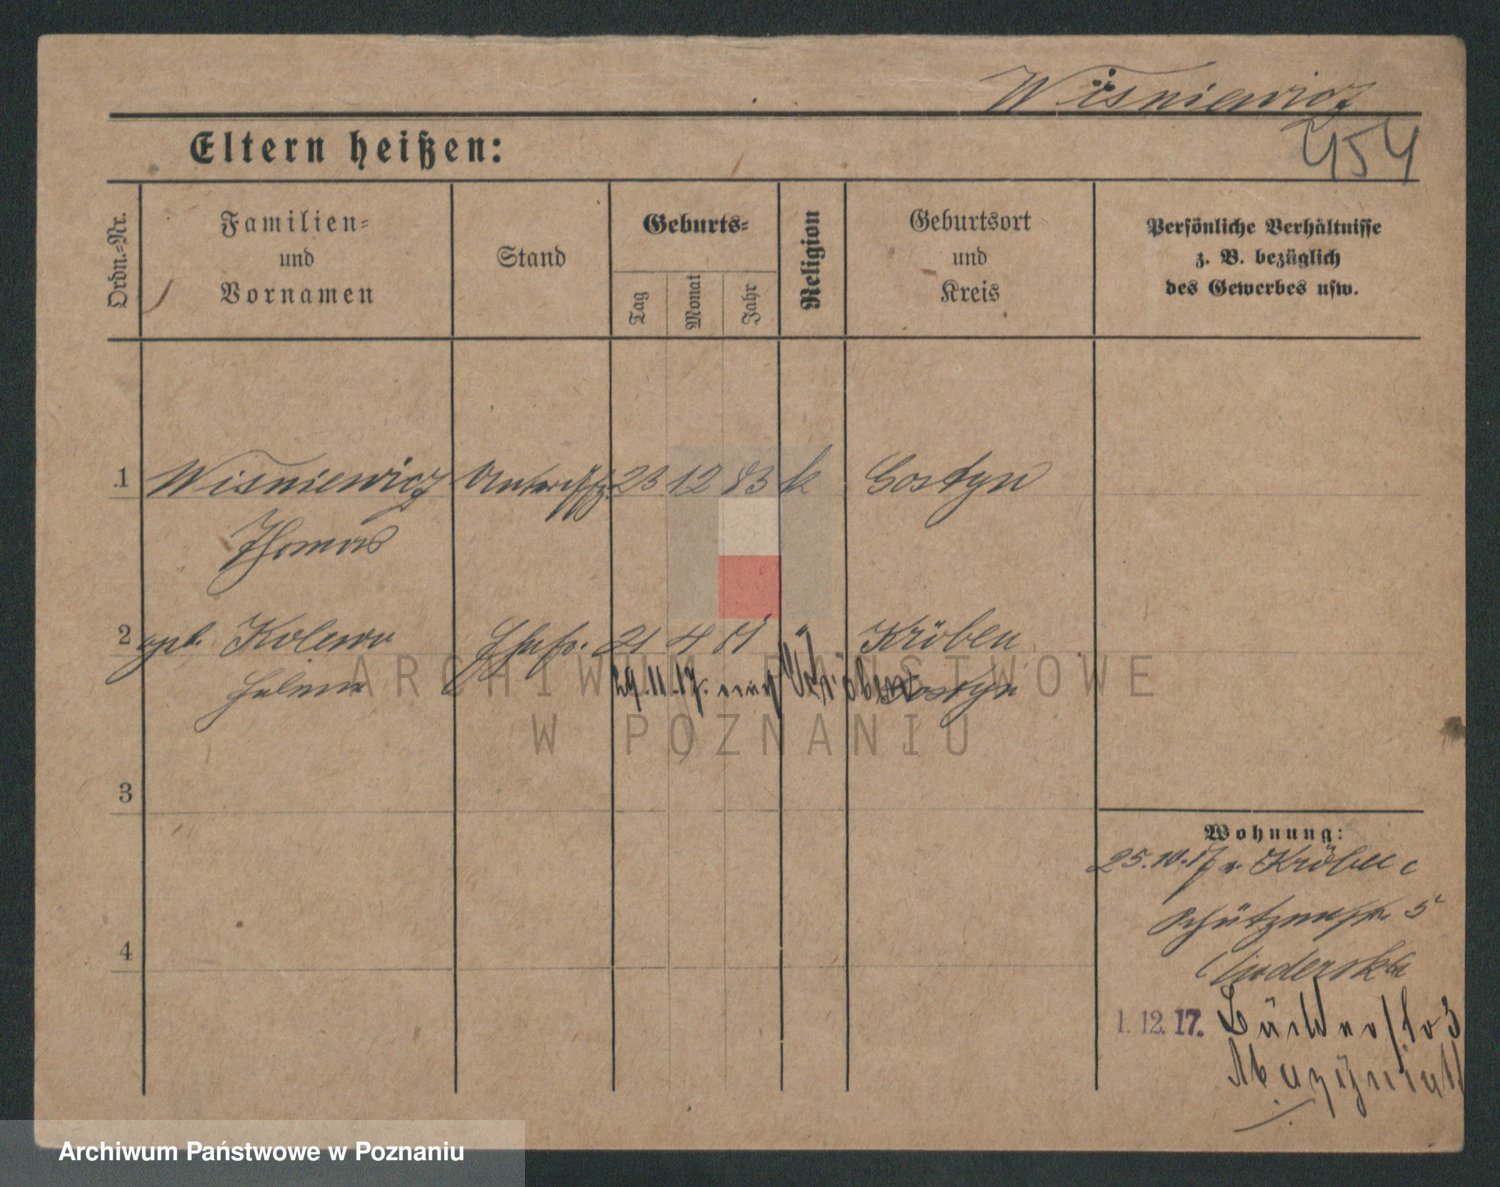 Wiśniewicz
Eltern heißen:
454
Ordn.-Nr.
Familien-
und
Vornamen
Stand
Geburts-
Tag
Monat
Jahr
Religion
Geburtsort
und
Kreis
Persönliche Verhältnisse
z. B. bezüglich
des Gewerbes usw.
1 Wiśniewicz 23 12 83 k Gostyn
Thomas
2 geb. 21. 4 Kröben
29.11.17. nach Kröben Gostyn
3
Wohnung:
25.10.17 v. Kröben
Schützenstr 5
4
1. 12. 17.
ARCHIWUM PAŃSTWOWE
W POZNANIU
Archiwum Państwowe w Poznaniu